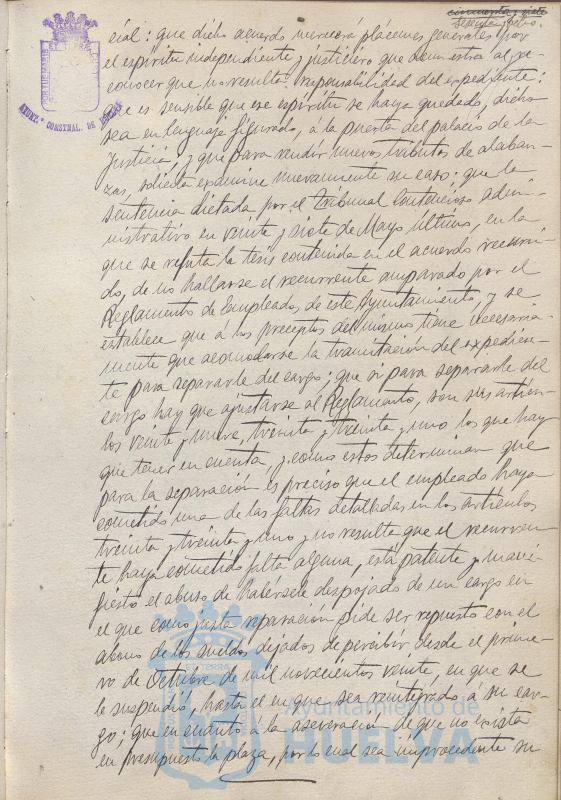 cincuenta y siete
sesenta y ocho.
cial: que dicho acuerdo merecerá plácemes generales, por
el espíritu independiente y justiciero que demuestra al re-
conocer que no resulta responsabilidad del expediente:
que es sensible que ese espíritu se haya quedado, dicho
sea en lenguaje figurado, a la puerta del palacio de la
Justicia, y que para rendir nuevos tributos de alaban-
zas, solicita examine nuevamente su caso: que la
sentencia dictada por el Tribunal Contencioso admi-
nistrativo en veinte y siete de Mayo último, en la
que se refuta la tesis contenida en el acuerdo recurri-
do, de no hallarse el recurrente amparado por el
Reglamento de Empleados de este Ayuntamiento, y se
establece que á los preceptos del mismo tiene necesaria-
mente que acomodarse la tramitación del expedien-
te para separarle del cargo; que si para separarle del
cargo hay que ajustarse al Reglamento, son sus artícu-
los veinte y nueve, treinta y treinta y uno los que hay
que tener en cuenta y como estos determinan que
para la separación es preciso que el empleado haya
cometido una de las faltas detalladas en los artículos
treinta y treinta y uno y no resulta que el recurren-
te haya cometido falta alguna, está patente y mani-
fiesto el abuso de habérsele despojado de un cargo en
el que como justa reparación pide ser repuesto con el
abono de los sueldos dejados de percibir desde el prime-
ro de Octubre de mil novecientos veinte, en que se
le suspendió, hasta el en que sea reintegrado á su car-
go; que en cuanto a la aseveración de que no exista
en presupuesto la plaza, por lo cual sea improcedente su
AYUNT.º CONSTNAL. DE HUELVA
Ayuntamiento de
HUELVA